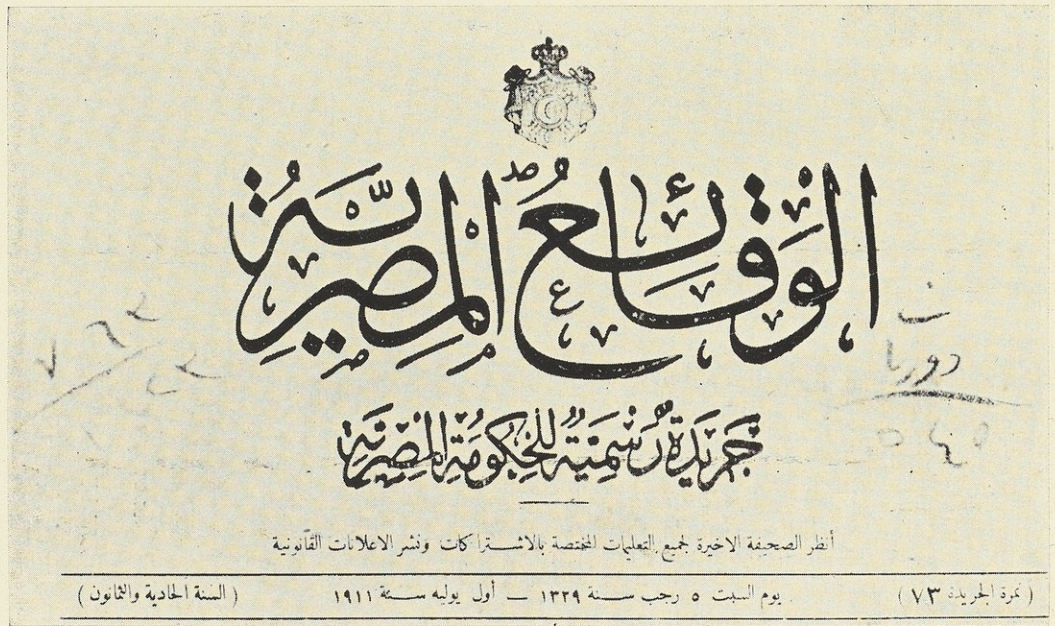 الوقائع المصرية
جريدة رسمية للحكومة المصرية
أنظر الصحيفة الاخيرة لجميع التعليمات المختصة بالاشتراكات ونشر الاعلانات القانونية
( نمرة الجريدة ٧٣ ) يوم السبت ٥ رجب سنة ١٣٢٩ — أول يوليه سنة ١٩١١ ( السنة الحادية والثمانون )
دوريا